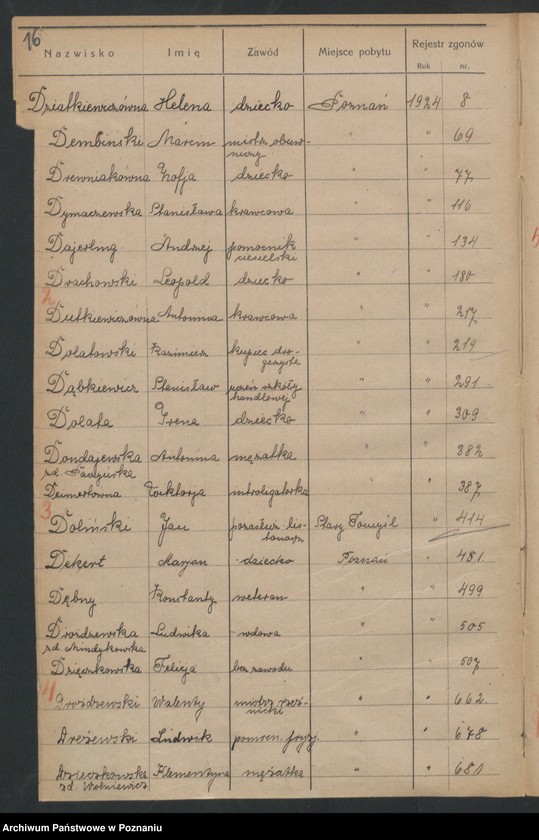 16
Nazwisko Imię Zawód Miejsce pobytu Rejestr zgonów
Rok nr.
Działkiewiczówna Helena dziecko Poznań 1924 8
Dembiński Marcin mistrz obuw-
niczy " " 69
Drewniakówna Zofja dziecko " " 77
Dymaczewska Stanisława krawcowa " " 116
Andrzej pomocnik
ciesielski " " 134
Drachowski Leopold dziecko " " 180
2
Dutkiewiczówna Antonina krawcowa " " 217
Dolatowski Kazimierz kupiec dro-
gerzysta " " 219
Dąbkiewicz Stanisław uczeń szkoły
handlowej " " 291
Dolata Irena dziecko " " 309
Dondajewska Antonina mężatka " " 382
zd.
Wiktorja introligatorka 387
3
Doliński Jan listonosz Stary Tomyśl " 414
Dekert Maryan dziecko Poznań " 481
Dębny Konstanty weteran " " 499
Drozdzewska Ludwika wdowa " " 505
zd. Mindykowska
Dzięcinkowska Felicja bez zawodu " " 507
4
Drożdżewski Walenty mistrz rzeź-
nicki " " 662
Dreżewski Ludwik pomocn. fryzj. " " 678
Dzieczkowska Klementyna mężatka " " 681
zd. Woźniewicz
Archiwum Państwowe w Poznaniu